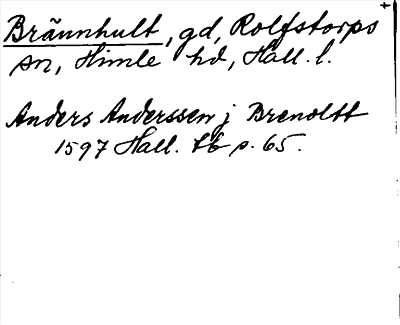 Brännhult, gd, Rolfstorps
sn, Himle hd, Hall. l.
Anders Anderssen j Brenoltt
1597 Hall. tb p. 65.